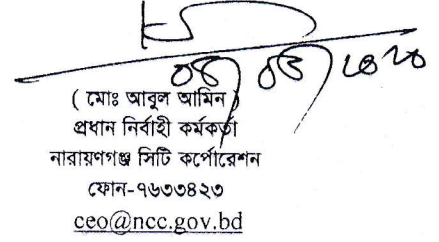 ( মোঃ আবুল আমিন )
প্রধান নির্বাহী কর্মকর্তা
নারায়ণগঞ্জ সিটি কর্পোরেশন
ফোন-৭৬৩৩৪২৩
ceo@ncc.gov.bd